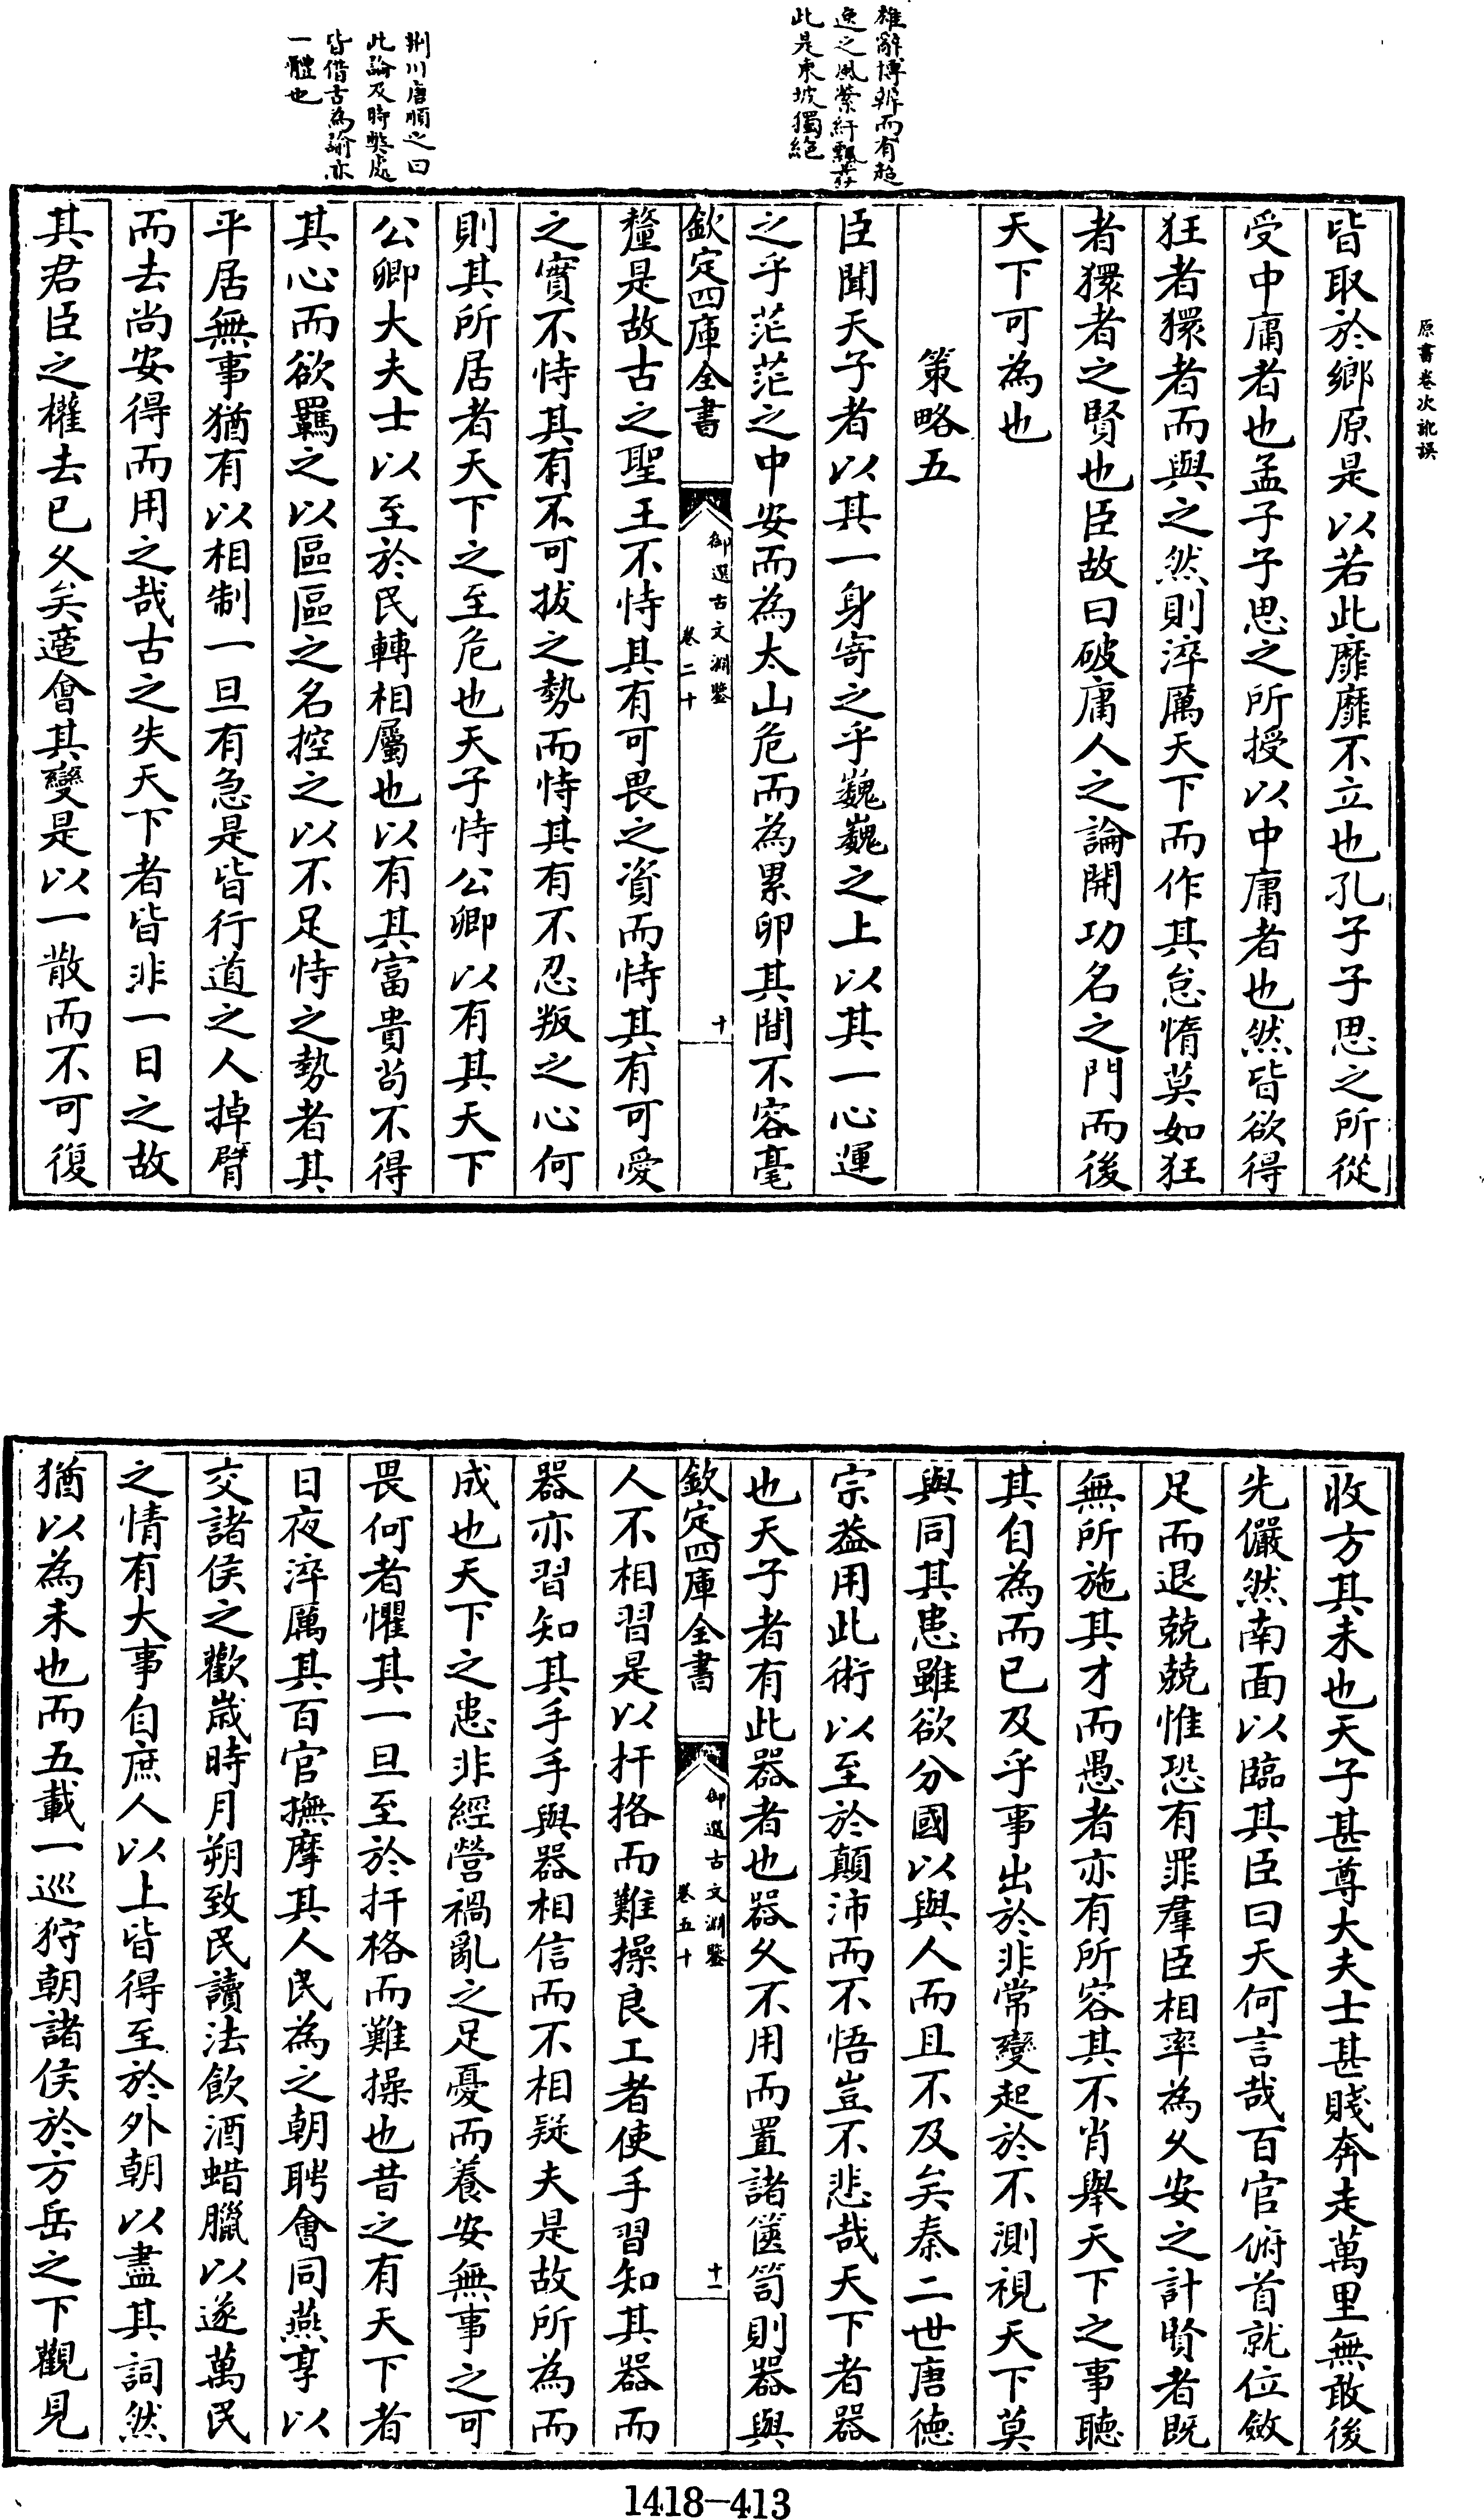 原書卷次訛誤
雄辭博辨而有超
逸之風縈紆飄蕩
此是東坡獨絶
荆川唐順之曰
此論及時弊處
皆借古為諭亦
一體也
皆取於鄉原是以若此靡靡不立也孔子子思之所從
受中庸者也孟子子思之所授以中庸者也然皆欲得
狂者獧者而與之然則淬厲天下而作其怠惰莫如狂
者獧者之賢也臣故曰破庸人之論開功名之門而後
天下可為也
策略五
臣聞天子者以其一身寄之乎巍巍之上以其一心運
之乎茫茫之中安而為太山危而為累卵其間不容毫
欽定四庫全書
御選古文淵鑒
卷二十
十
釐是故古之聖王不恃其有可畏之資而恃其有可愛
之實不恃其有不可拔之勢而恃其有不忍叛之心何
則其所居者天下之至危也天子恃公卿以有其天下
公卿大夫士以至於民轉相屬也以有其富貴苟不得
其心而欲羈之以區區之名控之以不足恃之勢者其
平居無事猶有以相制一旦有急是皆行道之人掉臂
而去尚安得而用之哉古之失天下者皆非一日之故
其君臣之權去已久矣適會其變是以一散而不可復
收方其未也天子甚尊大夫士甚賤奔走萬里無敢後
先儼然南面以臨其臣曰天何言哉百官俯首就位斂
足而退兢兢惟恐有罪羣臣相率為久安之計賢者既
無所施其才而愚者亦有所容其不肖舉天下之事聽
其自為而已及乎事出於非常變起於不測視天下莫
與同其患雖欲分國以與人而且不及矣秦二世唐德
宗葢用此術以至於顛沛而不悟豈不悲哉天下者器
也天子者有此器者也器久不用而置諸篋笥則器與
欽定四庫全書
御選古文淵鑒
卷五十
十一
人不相習是以扞挌而難操良工者使手習知其器而
器亦習知其手手與器相信而不相疑夫是故所為而
成也天下之患非經營禍亂之足憂而養安無事之可
畏何者懼其一旦至於扞格而難操也昔之有天下者
日夜淬厲其百官撫摩其人民為之朝聘會同燕享以
交諸侯之歡歲時月朔致民讀法飲酒蜡臘以遂萬民
之情有大事自庶人以上皆得至於外朝以盡其詞然
猶以為未也而五載一巡狩朝諸侯於方岳之下觀見
1418—413